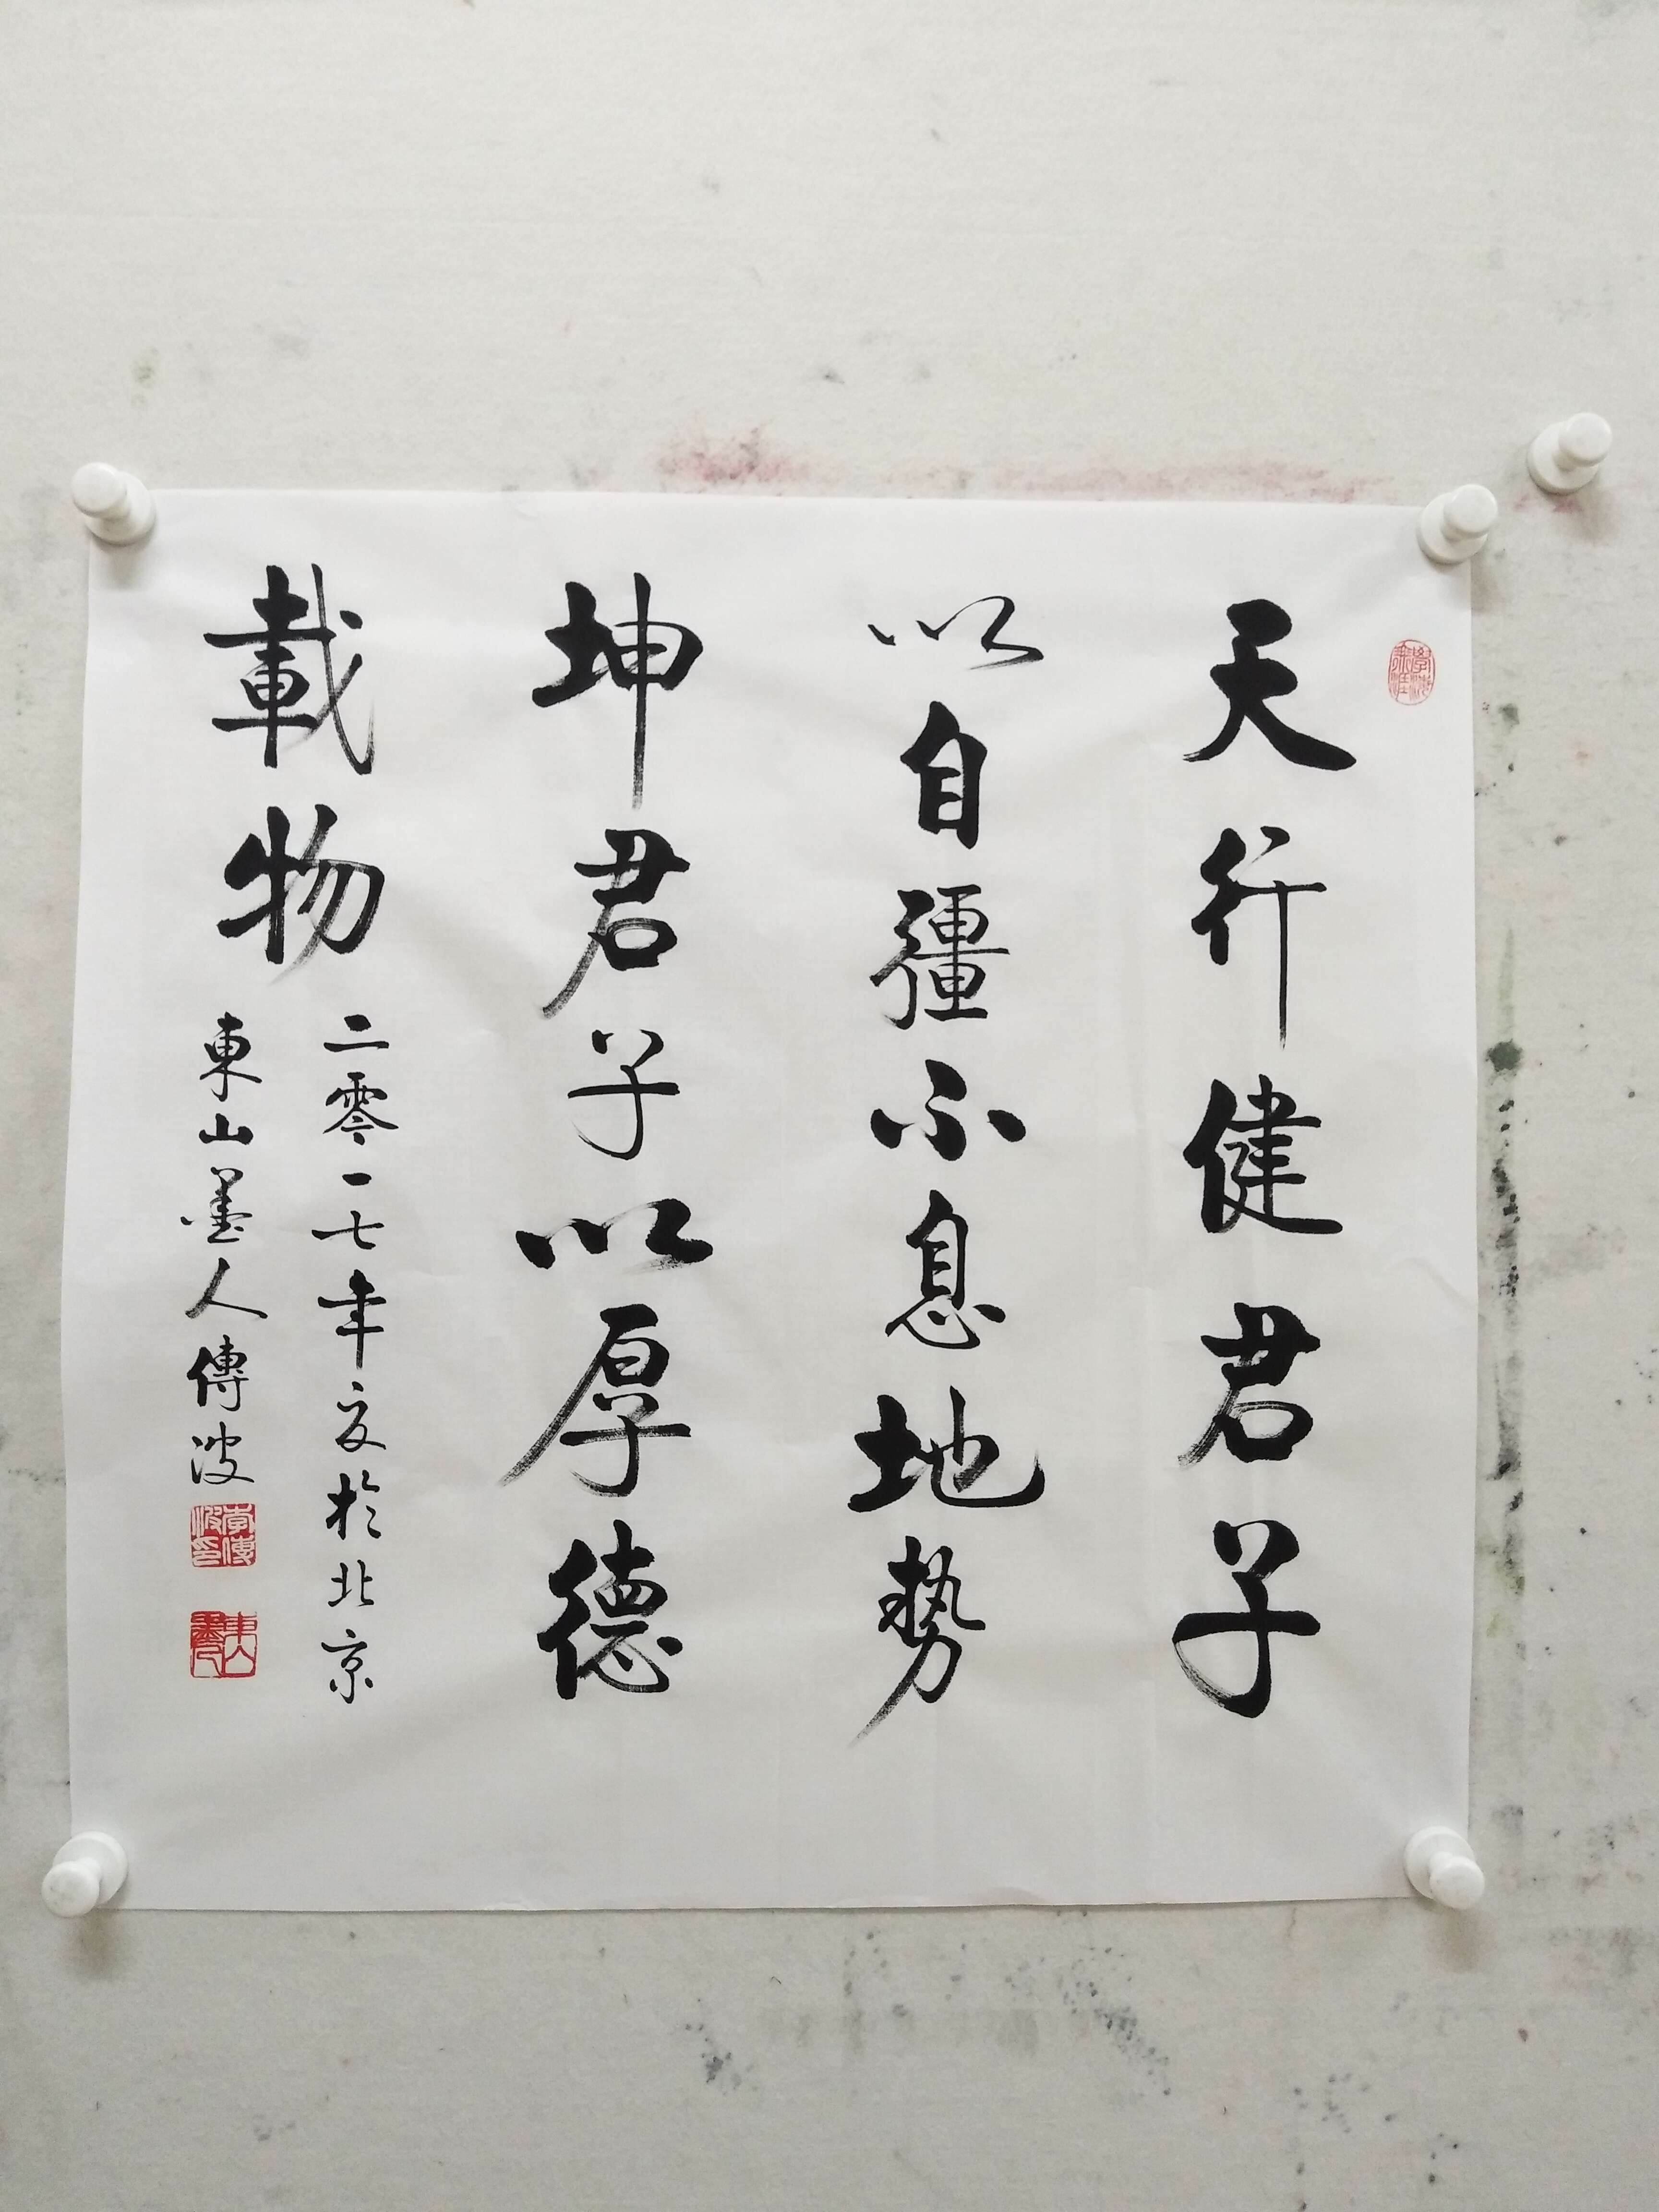 天行健君子
以自彊不息地勢
坤君子以厚德
載物
二零一七年夏於北京
東山墨人傳波